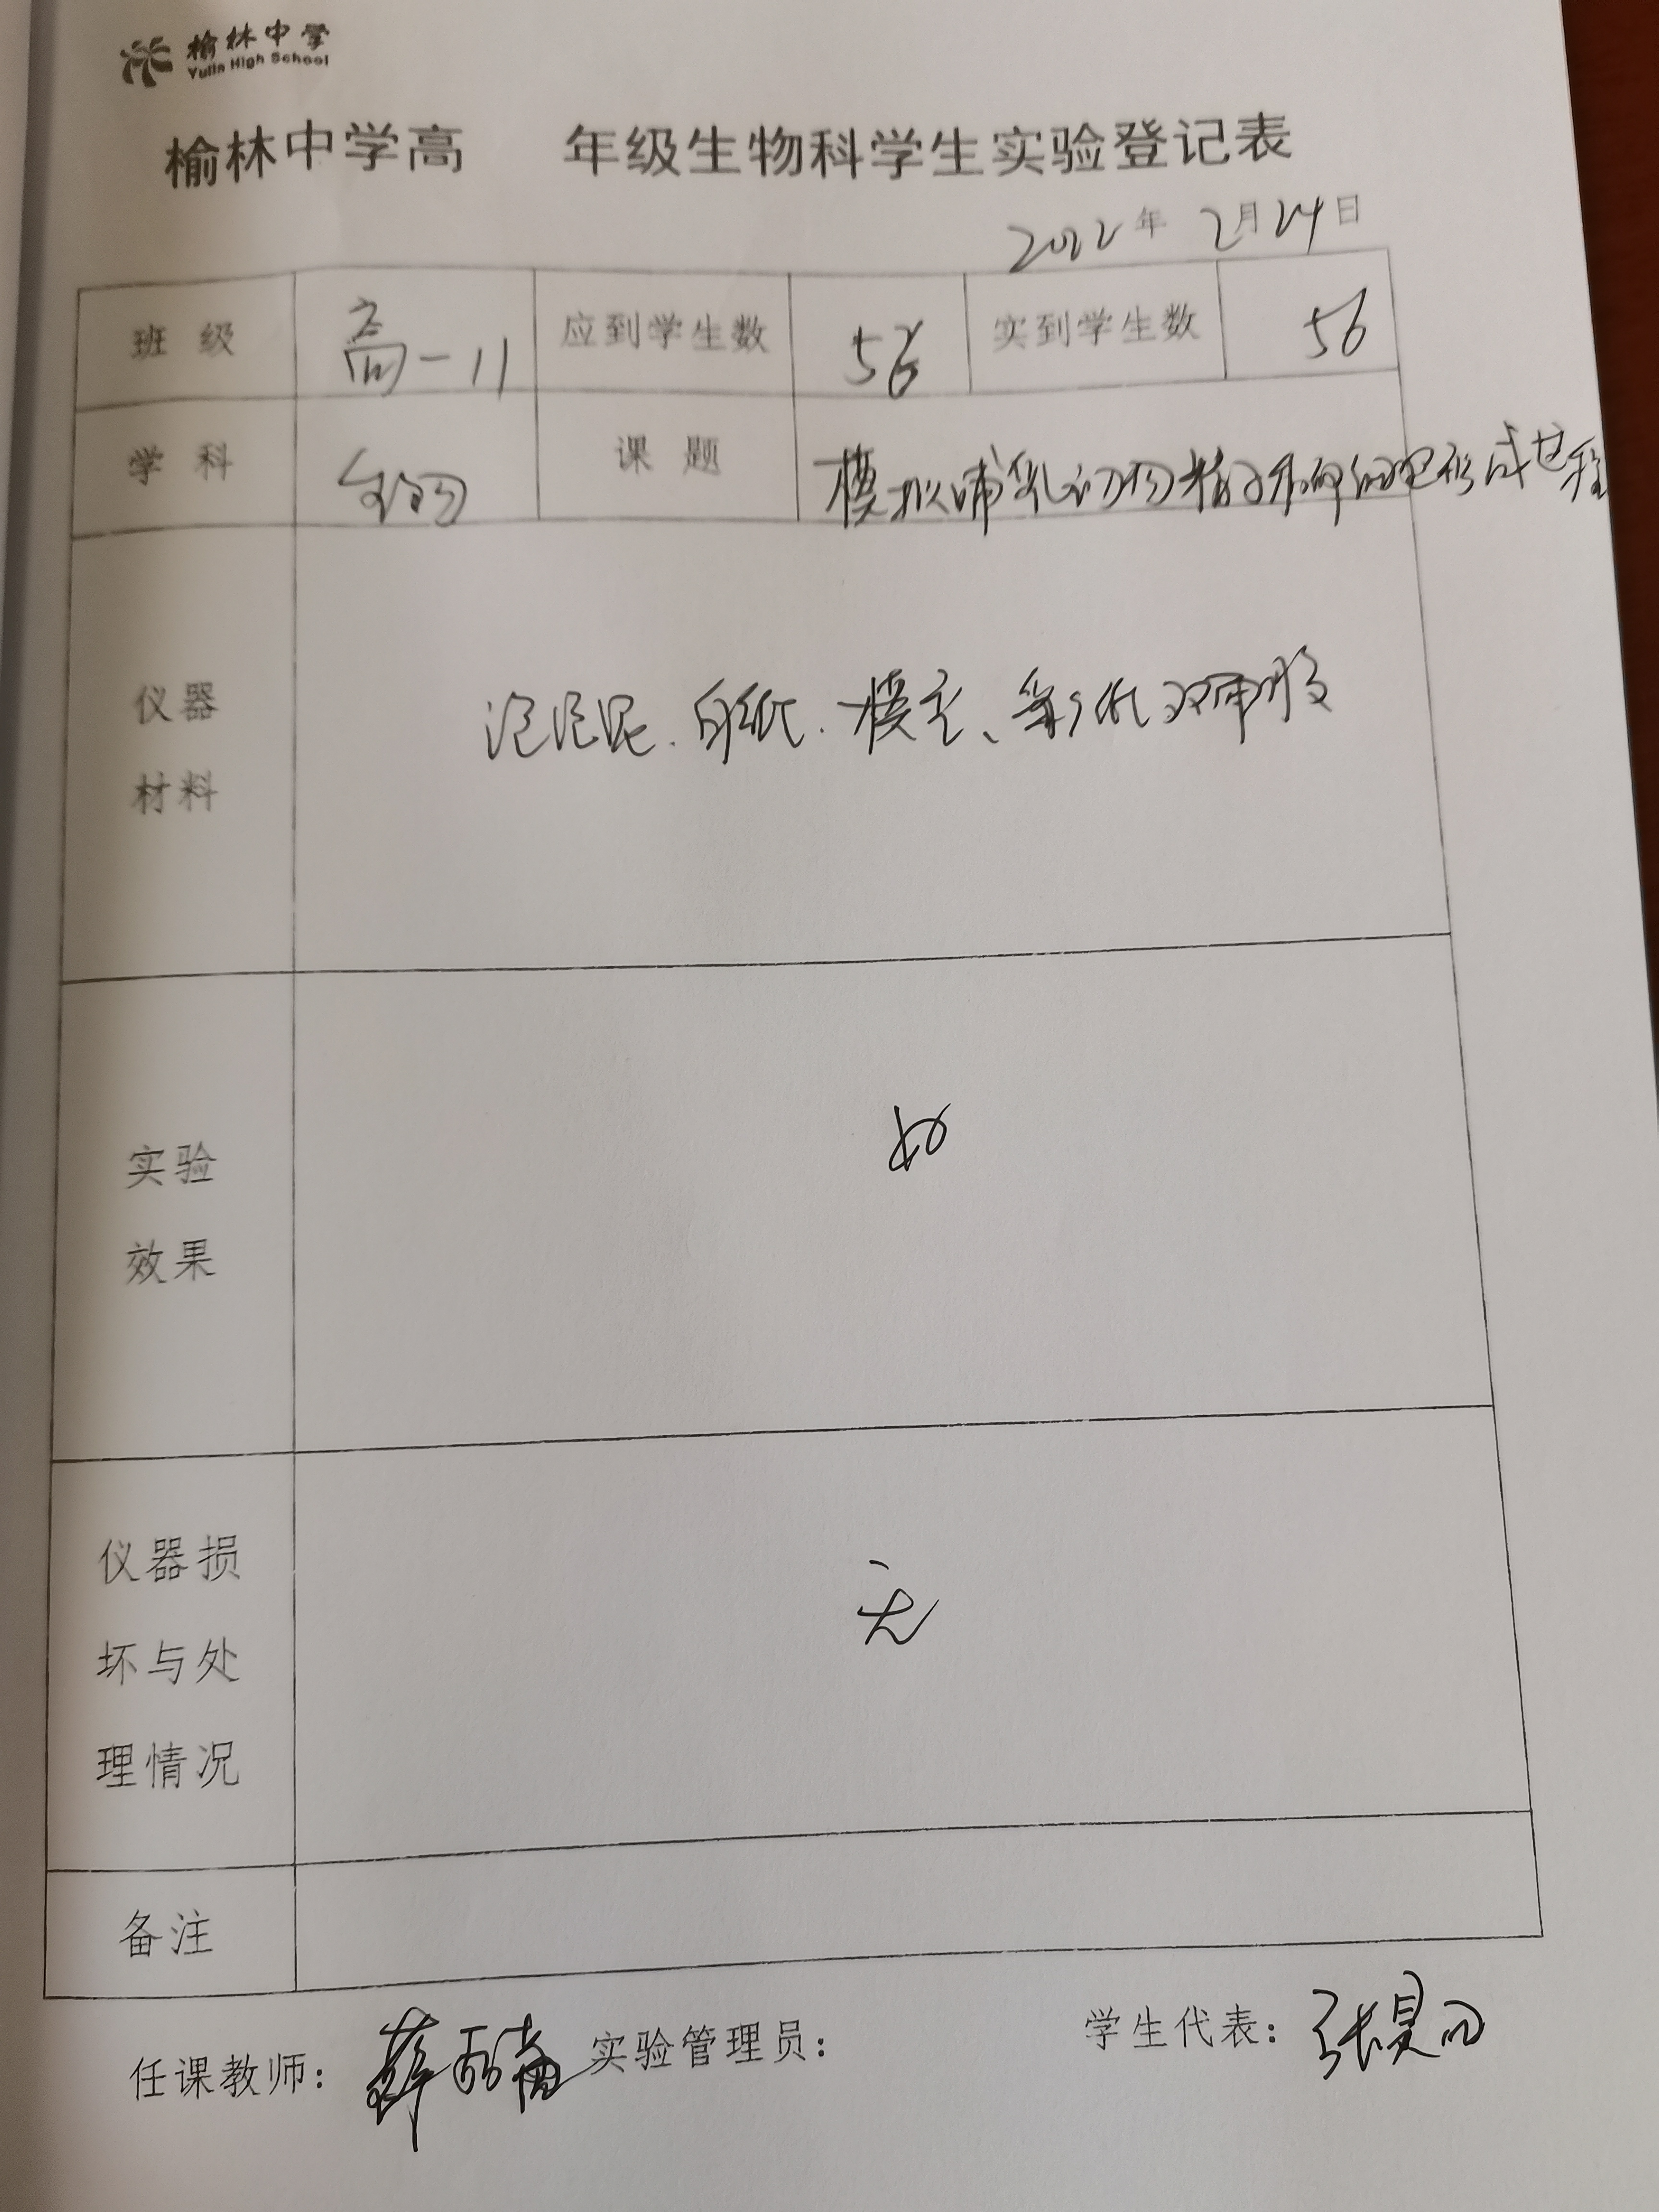 榆林中学
Yulin High School
榆林中学高 年级生物科学生实验登记表
2022年 2月24日
班级 高一11 应到学生数 56 实到学生数 56
学科 生物 课题 模拟哺乳动物精子和卵细胞形成过程
仪器
材料
泡泡泥、白纸、模主、彩纸 双面胶
实验
效果
好
仪器损
坏与处
理情况
无
备注
任课教师: 薛 实验管理员: 学生代表: 张昊